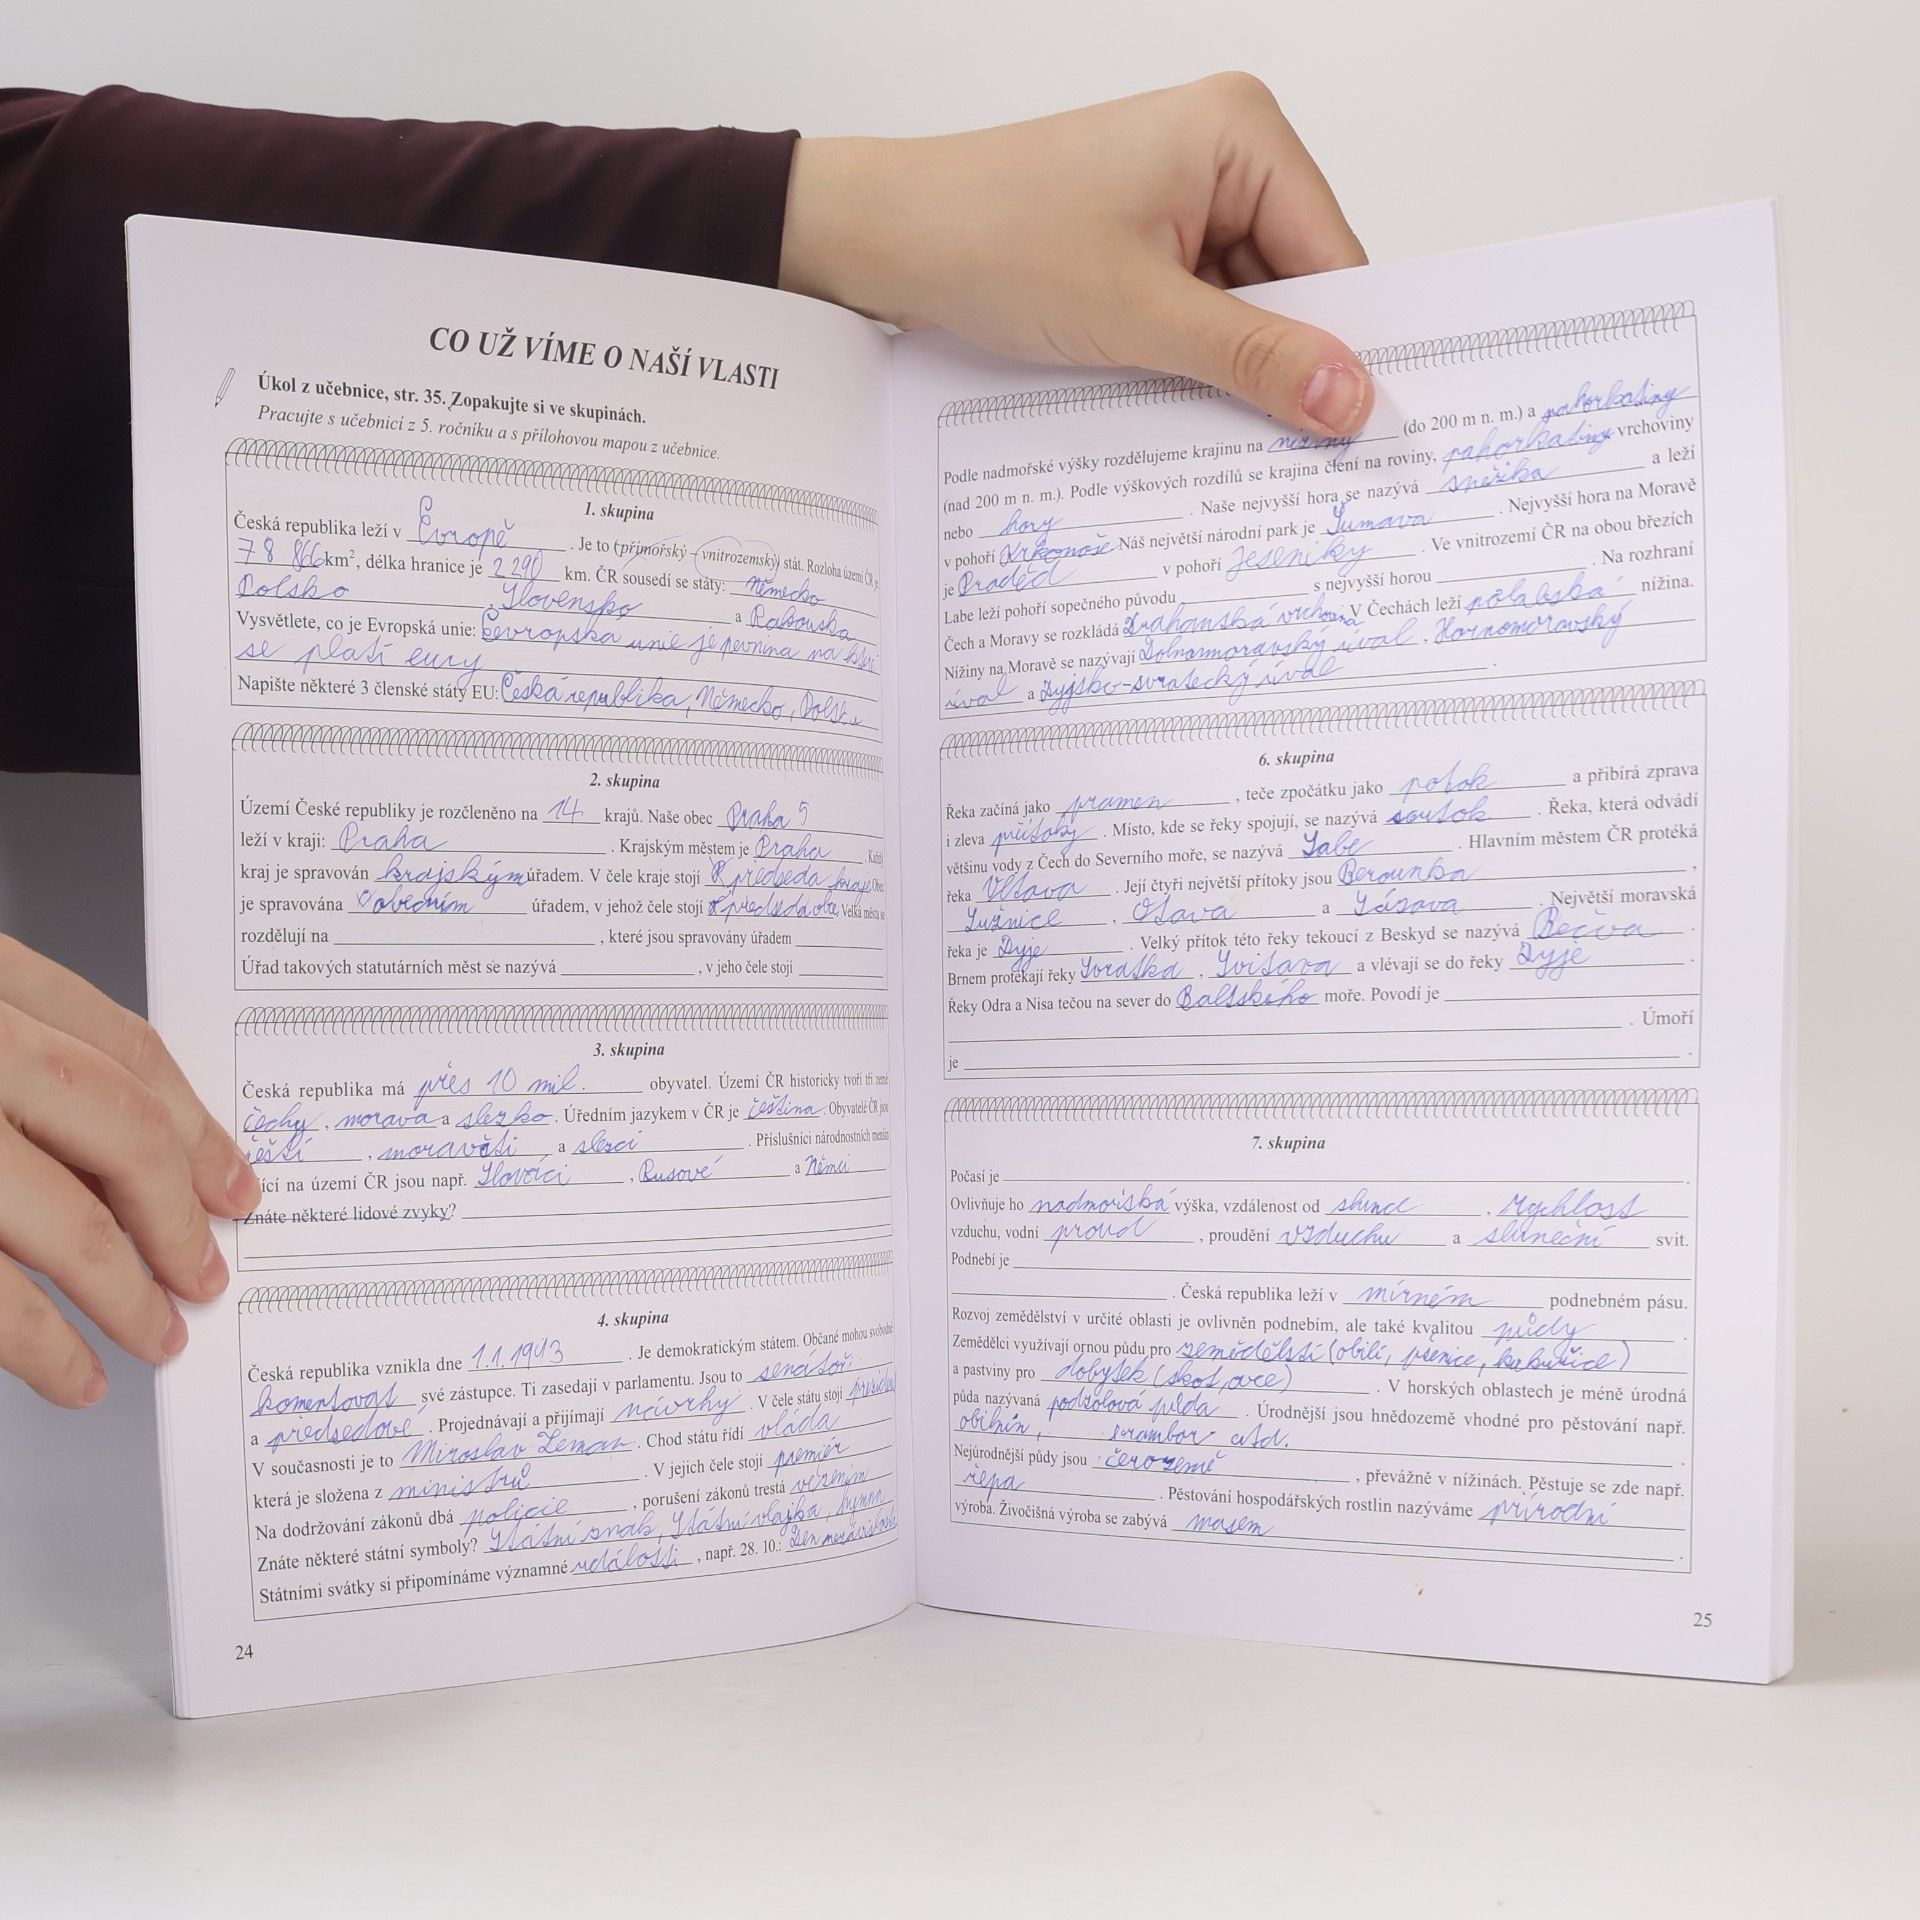 CO UŽ VÍME O NAŠÍ VLASTI
Úkol z učebnice, str. 35. Zopakujte si ve skupinách.
Pracujte s učebnicí z 5. ročníku a s přílohovou mapou z učebnice.
1. skupina
Česká republika leží v Evropě . Je to (přímořský – vnitrozemský) stát. Rozloha území ČR je
78 866 km², délka hranice je 2 290 km. ČR sousedí se státy: Německo
Polsko , Slovensko a Rakouska
Vysvětlete, co je Evropská unie: Evropska unie je pevnina na které
se platí eury
Napište některé 3 členské státy EU: Česká republika, Německo, Polsko
2. skupina
Území České republiky je rozčleněno na 14 krajů. Naše obec Praha 5
leží v kraji: Praha . Krajským městem je Praha . Každý
kraj je spravován krajským úřadem. V čele kraje stojí předseda kraje Obec
je spravována obecním úřadem, v jehož čele stojí předseda obce Velká města se
rozdělují na , které jsou spravovány úřadem
Úřad takových statutárních měst se nazývá , v jeho čele stojí
3. skupina
Česká republika má přes 10 mil. obyvatel. Území ČR historicky tvoří tři země
čechy , morava a slezko . Úředním jazykem v ČR je čeština . Obyvatelé ČR jsou
češti , moravěti a slezci . Příslušníci národnostních menšin
ící na území ČR jsou např. Slováci , Rusové a Němci
Znáte některé lidové zvyky?
4. skupina
Česká republika vznikla dne 1.1.1993 . Je demokratickým státem. Občané mohou svobodně
komentovat své zástupce. Ti zasedají v parlamentu. Jsou to senátoři
a předsedové . Projednávají a přijímají návrhy . V čele státu stojí prezident
V současnosti je to Miroslav Zeman . Chod státu řídí vláda
která je složena z ministrů . V jejich čele stojí premiér
Na dodržování zákonů dbá policie , porušení zákonů trestá vězením
Znáte některé státní symboly? Státní znak, Státní vlajka, hymna
Státními svátky si připomínáme významné události , např. 28. 10.: Den nezávislosti
24
Podle nadmořské výšky rozdělujeme krajinu na nížiny (do 200 m n. m.) a pahorkatiny
(nad 200 m n. m.). Podle výškových rozdílů se krajina člení na roviny, pahorkatiny vrchoviny
nebo hory . Naše nejvyšší hora se nazývá sněžka a leží
v pohoří Krkonoše Náš největší národní park je Šumava . Nejvyšší hora na Moravě
je Praděd v pohoří Jeseníky . Ve vnitrozemí ČR na obou březích
Labe leží pohoří sopečného původu s nejvyšší horou . Na rozhraní
Čech a Moravy se rozkládá Drahanská vrchovina V Čechách leží polabská nížina.
Nížiny na Moravě se nazývají Dolnomoravský úval , Hornomoravský
úval a Dyjsko-svratecký úval .
6. skupina
Řeka začíná jako pramen , teče zpočátku jako potok a přibírá zprava
i zleva přítoky . Místo, kde se řeky spojují, se nazývá soutok . Řeka, která odvádí
většinu vody z Čech do Severního moře, se nazývá Labe . Hlavním městem ČR protéká
řeka Vltava . Její čtyři největší přítoky jsou Berounka ,
Lužnice , Otava a Sázava . Největší moravská
řeka je Dyje . Velký přítok této řeky tekoucí z Beskyd se nazývá Bečva .
Brnem protékají řeky Svratka , Svitava a vlévají se do řeky Dyje .
Řeky Odra a Nisa tečou na sever do Baltského moře. Povodí je
. Úmoří
je .
7. skupina
Počasí je .
Ovlivňuje ho nadmořská výška, vzdálenost od slunce , rychlost
vzduchu, vodní proud , proudění vzduchu a sluneční svit.
Podnebí je
. Česká republika leží v mírném podnebném pásu.
Rozvoj zemědělství v určité oblasti je ovlivněn podnebím, ale také kvalitou půdy .
Zemědělci využívají ornou půdu pro zemědělstí (obilí, pšenice, kukuřice)
a pastviny pro dobytek (skot, ovce) . V horských oblastech je méně úrodná
půda nazývaná podzolová půda . Úrodnější jsou hnědozemě vhodné pro pěstování např.
obilnin, brambor atd. .
Nejúrodnější půdy jsou černozemě , převážně v nížinách. Pěstuje se zde např.
řepa . Pěstování hospodářských rostlin nazýváme přírodní
výroba. Živočišná výroba se zabývá masem
.
25